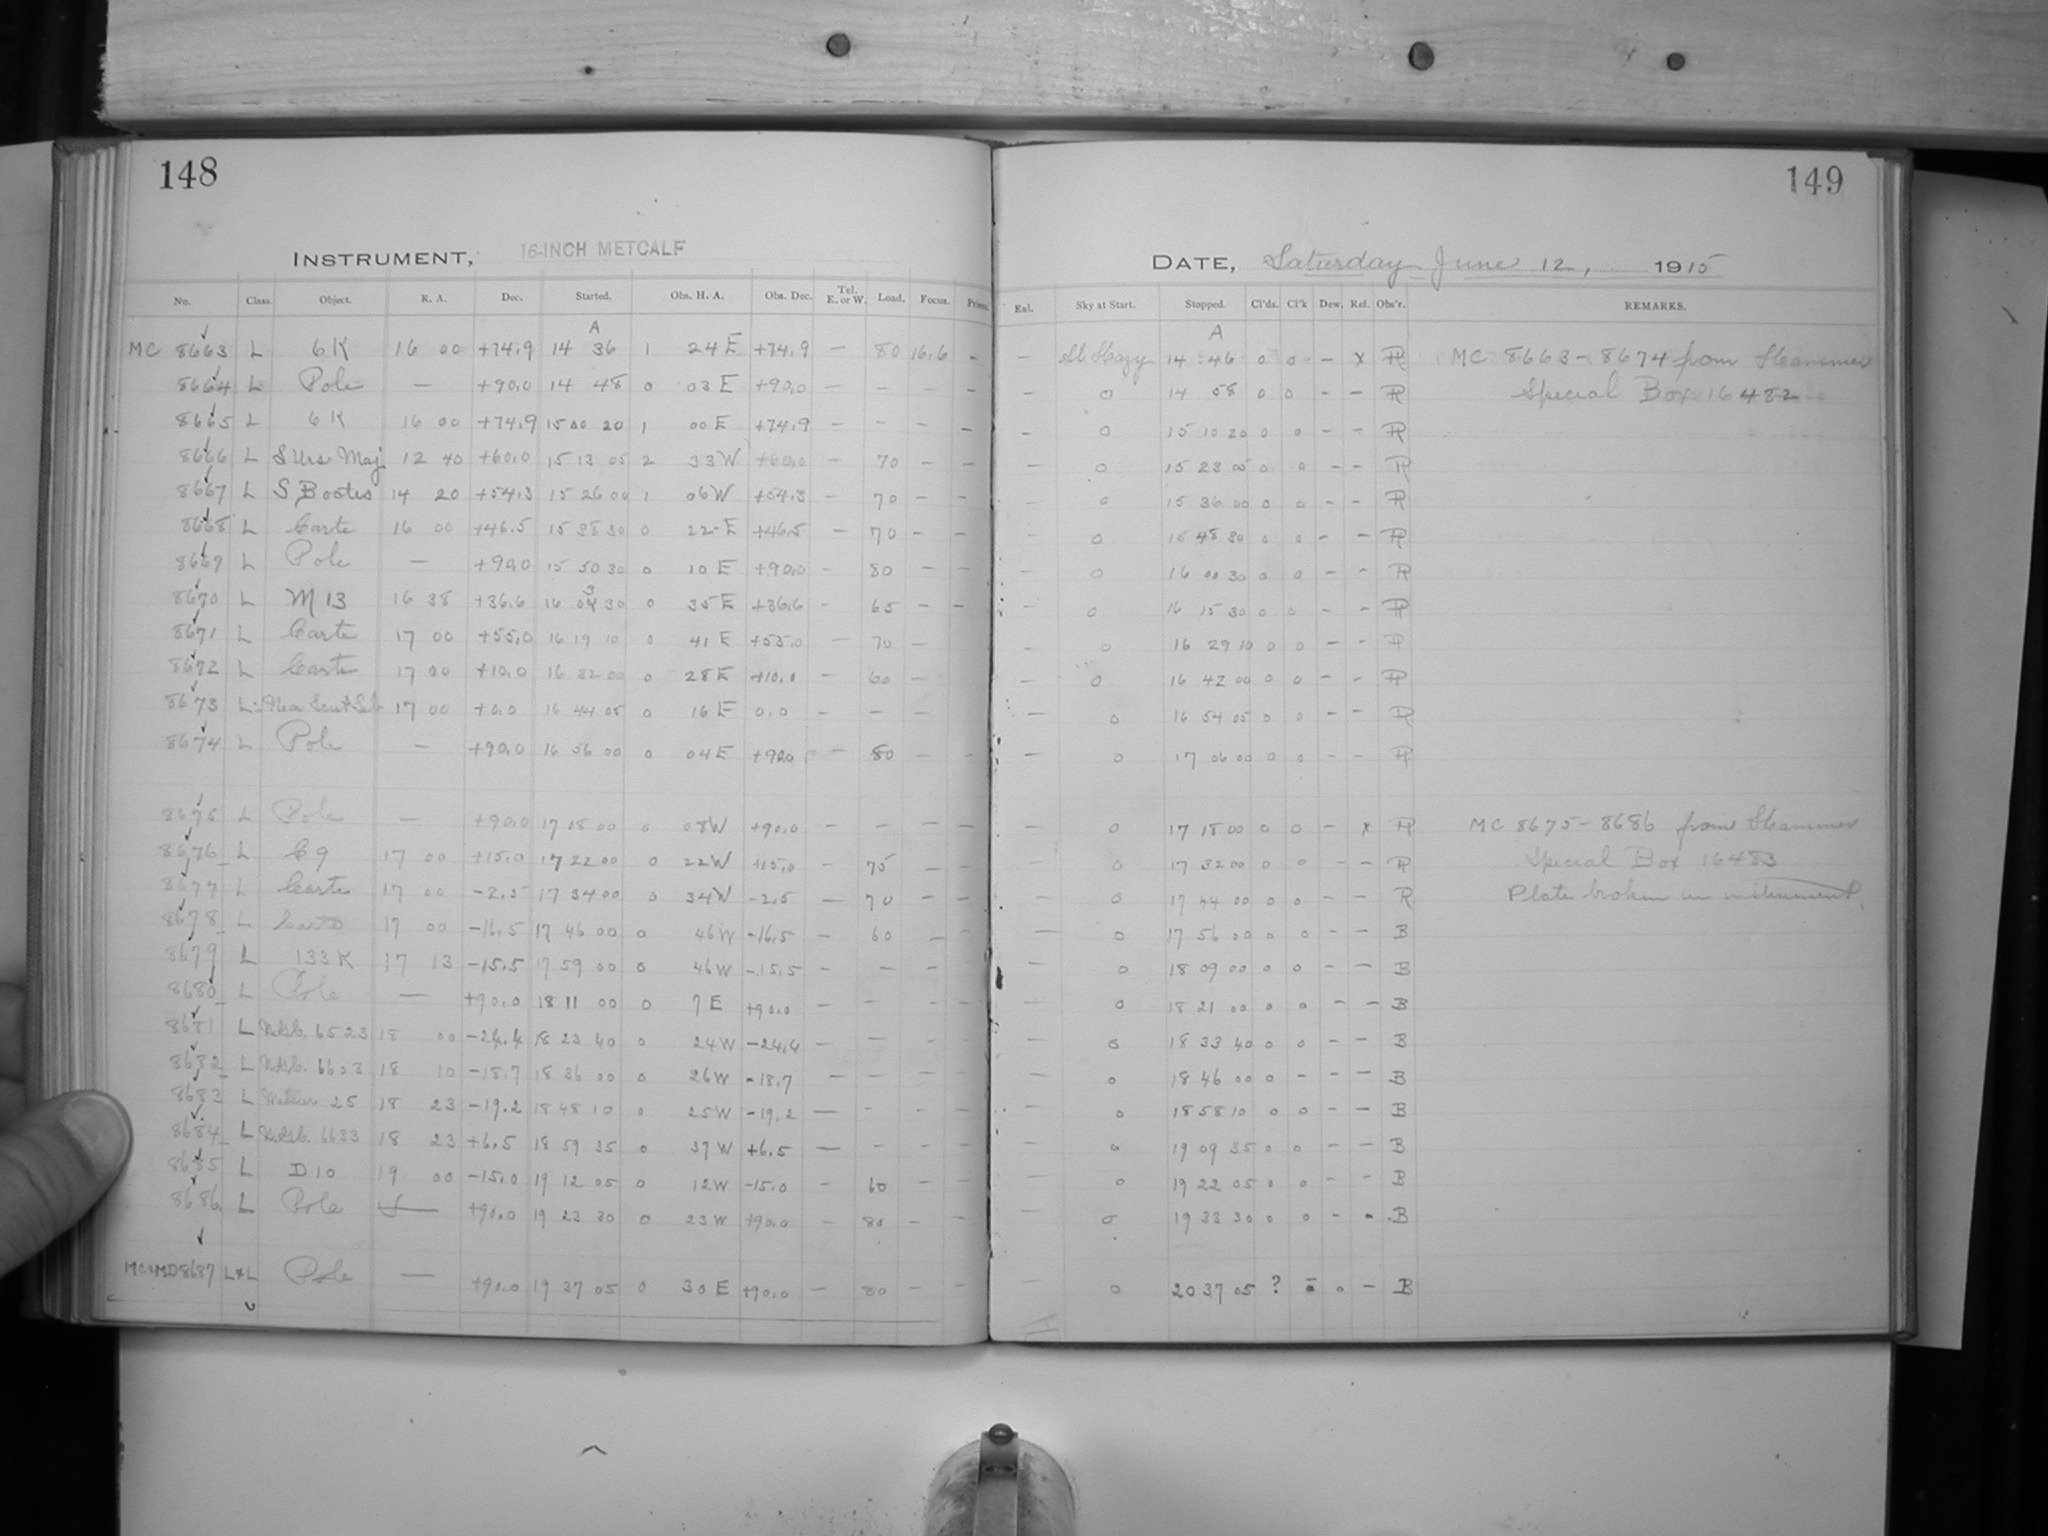 148
149
INSTRUMENT, 16-INCH METCALF
DATE, Saturday June 12, 1915
No. Class. Object. R. A. Dec. Started. Obs. H. A. Obs. Dec. Tel. E. or W. Load. Focus. Prism.
Eal. Sky at Start. Stopped. Cl'ds. Cl'k Dew. Ref. Obs'r. REMARKS.
A A
MC 8663 L 6 K 16 00 +74.9 14 36 1 24 E +74.9 — 80 16.6 - — Sl. Hazy 14 46 0 0 — x R MC 8663 - 8674 from Hammer
8664 L Pole — +90.0 14 48 0 03 E +90.0 — — — — — 0 14 58 0 0 — — R Special Box 16482
8665 L 6 K 16 00 +74.9 15 00 20 1 00 E +74.9 — — — — — 0 15 10 20 0 0 — — R
8666 L S Urs Maj 12 40 +60.0 15 13 05 2 33 W +60.0 — 70 — — — 0 15 23 05 0 0 — — R
8667 L S Bootis 14 20 +54.3 15 26 00 1 06 W +54.3 — 70 — — — 0 15 36 00 0 0 — — R
8668 L Carte 16 00 +46.5 15 38 30 0 22 E +46.5 — 70 — — — 0 15 48 30 0 0 — — R
8669 L Pole — +90.0 15 50 30 0 10 E +90.0 — 80 — — — 0 16 00 30 0 0 — — R
8670 L M 13 16 38 +36.6 16 0 3 30 0 35 E +36.6 — 65 — — — 0 16 15 30 0 0 — — R
8671 L Carte 17 00 +55.0 16 19 10 0 41 E +55.0 — 70 — — 0 16 29 10 0 0 — — R
8672 L Carte 17 00 +10.0 16 32 00 0 28 E +10.0 — 60 — — 0 16 42 00 0 0 — — R
8673 L 17 00 +0.0 16 44 05 0 16 E 0.0 — — — — 0 16 54 05 0 0 — — R
8674 L Pole — +90.0 16 56 00 0 04 E +90.0 — 80 — — — 0 17 06 00 0 0 — — R
8675 L Pole — +90.0 17 08 00 0 08 W +90.0 — — — — — 0 17 18 00 0 0 — x R MC 8675 - 8686 from Hammer
8676 L C 9 17 00 +15.0 17 22 00 0 22 W +15.0 — 75 — — — 0 17 32 00 0 0 — — R Special Box 16483
8677 L Carte 17 00 -2.5 17 34 00 0 34 W -2.5 — 70 — — — 0 17 44 00 0 0 — — R Plate broken in instrument.
8678 L Carte 17 00 -16.5 17 46 00 0 46 W -16.5 — 60 — — — 0 17 56 00 0 0 — — B
8679 L 133 K 17 13 -15.5 17 59 00 0 46 W -15.5 — — — — — 0 18 09 00 0 0 — — B
8680 L Pole — +90.0 18 11 00 0 7 E +90.0 — — — — — 0 18 21 00 0 0 — — B
8681 L N.G.C. 6523 18 00 -24.4 18 23 40 0 24 W -24.4 — — — — — 0 18 33 40 0 0 — — B
8682 L N.G.C. 6603 18 10 -18.7 18 36 00 0 26 W -18.7 — — — — — 0 18 46 00 0 — — — B
8683 L Messier 25 18 23 -19.2 18 48 10 0 25 W -19.2 — — — — — 0 18 58 10 0 0 — — B
8684 L N.G.C. 6633 18 23 +6.5 18 59 35 0 37 W +6.5 — — — — — 0 19 09 35 0 0 — — B
8685 L D 10 19 00 -15.0 19 12 05 0 12 W -15.0 — 60 — — — 0 19 22 05 0 0 — — B
8686 L Pole — +90.0 19 23 30 0 23 W +90.0 — 80 — — — 0 19 33 30 0 0 — — B
MC&MD 8687 L&L Pole — +90.0 19 37 05 0 30 E +90.0 — 80 — — — 0 20 37 05 ? 0 0 — B